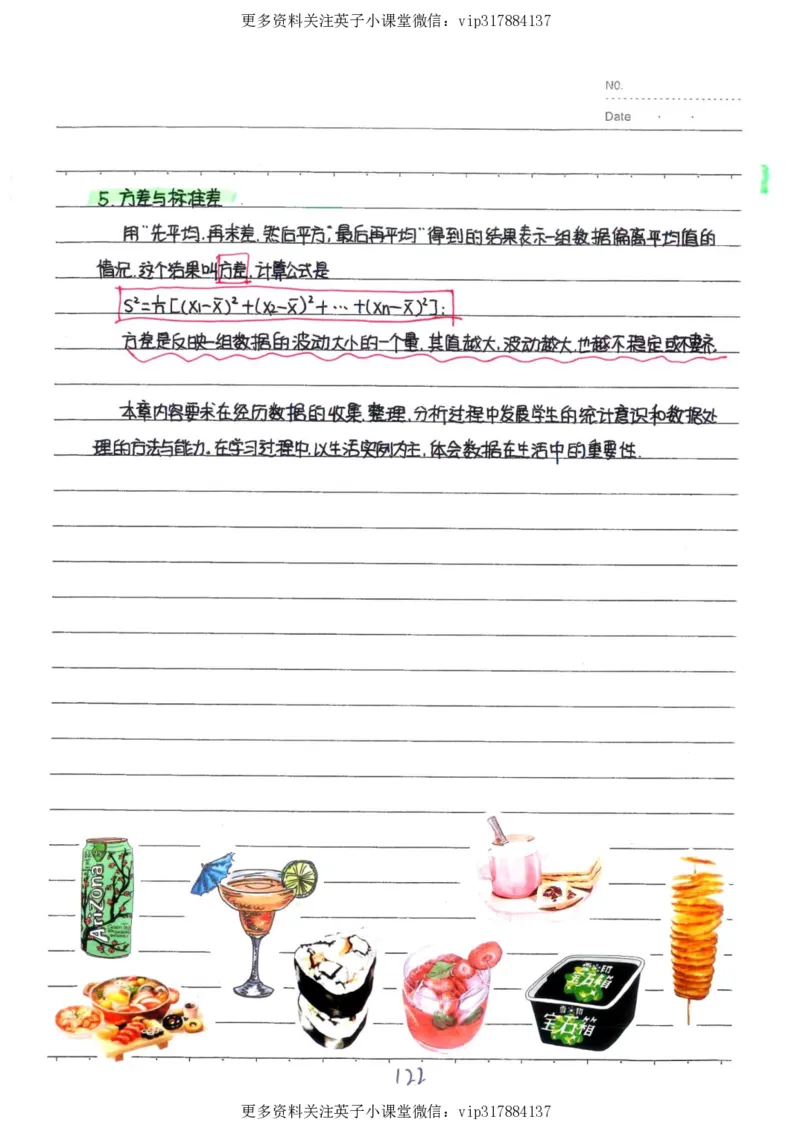 更多资料关注英子小课堂微信：vip317884137
NO.
Date
5.方差与标准差
用"先平均,再求差,然后平方,最后再平均"得到的结果表示一组数据偏离平均值的
情况,这个结果叫方差,计算公式是
S²=1/n[(x₁-x̄)²+(x₂-x̄)²+…+(xn-x̄)²];
方差是反映一组数据的波动大小的一个量,其值越大,波动越大,也越不稳定或不整齐.
本章内容要求在经历数据的收集,整理,分析过程中发展学生的统计意识和数据处
理的方法与能力。在学习过程中,以生活实例为主,体会数据在生活中的重要性.
Arizona
宝石箱
宝石箱
122
更多资料关注英子小课堂微信：vip317884137